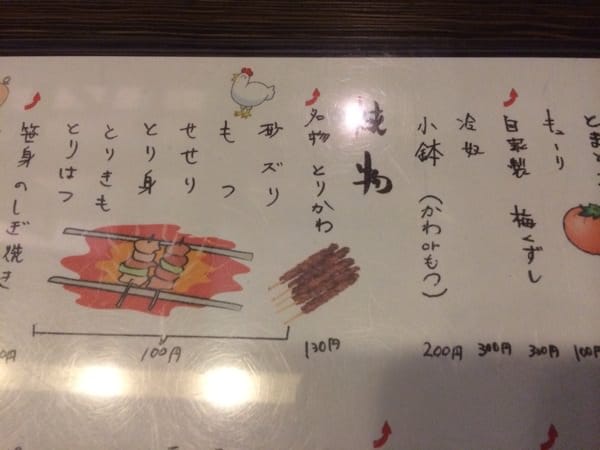 とまと
キューリ
自家製 梅くずし
冷奴
小鉢（かわorもつ）
焼物
名物 とりかわ
砂ズリ
もつ
せせり
とり身
とりきも
とりはつ
笹身のしぎ焼き
100円
300円
300円
200円
130円
100円
0円